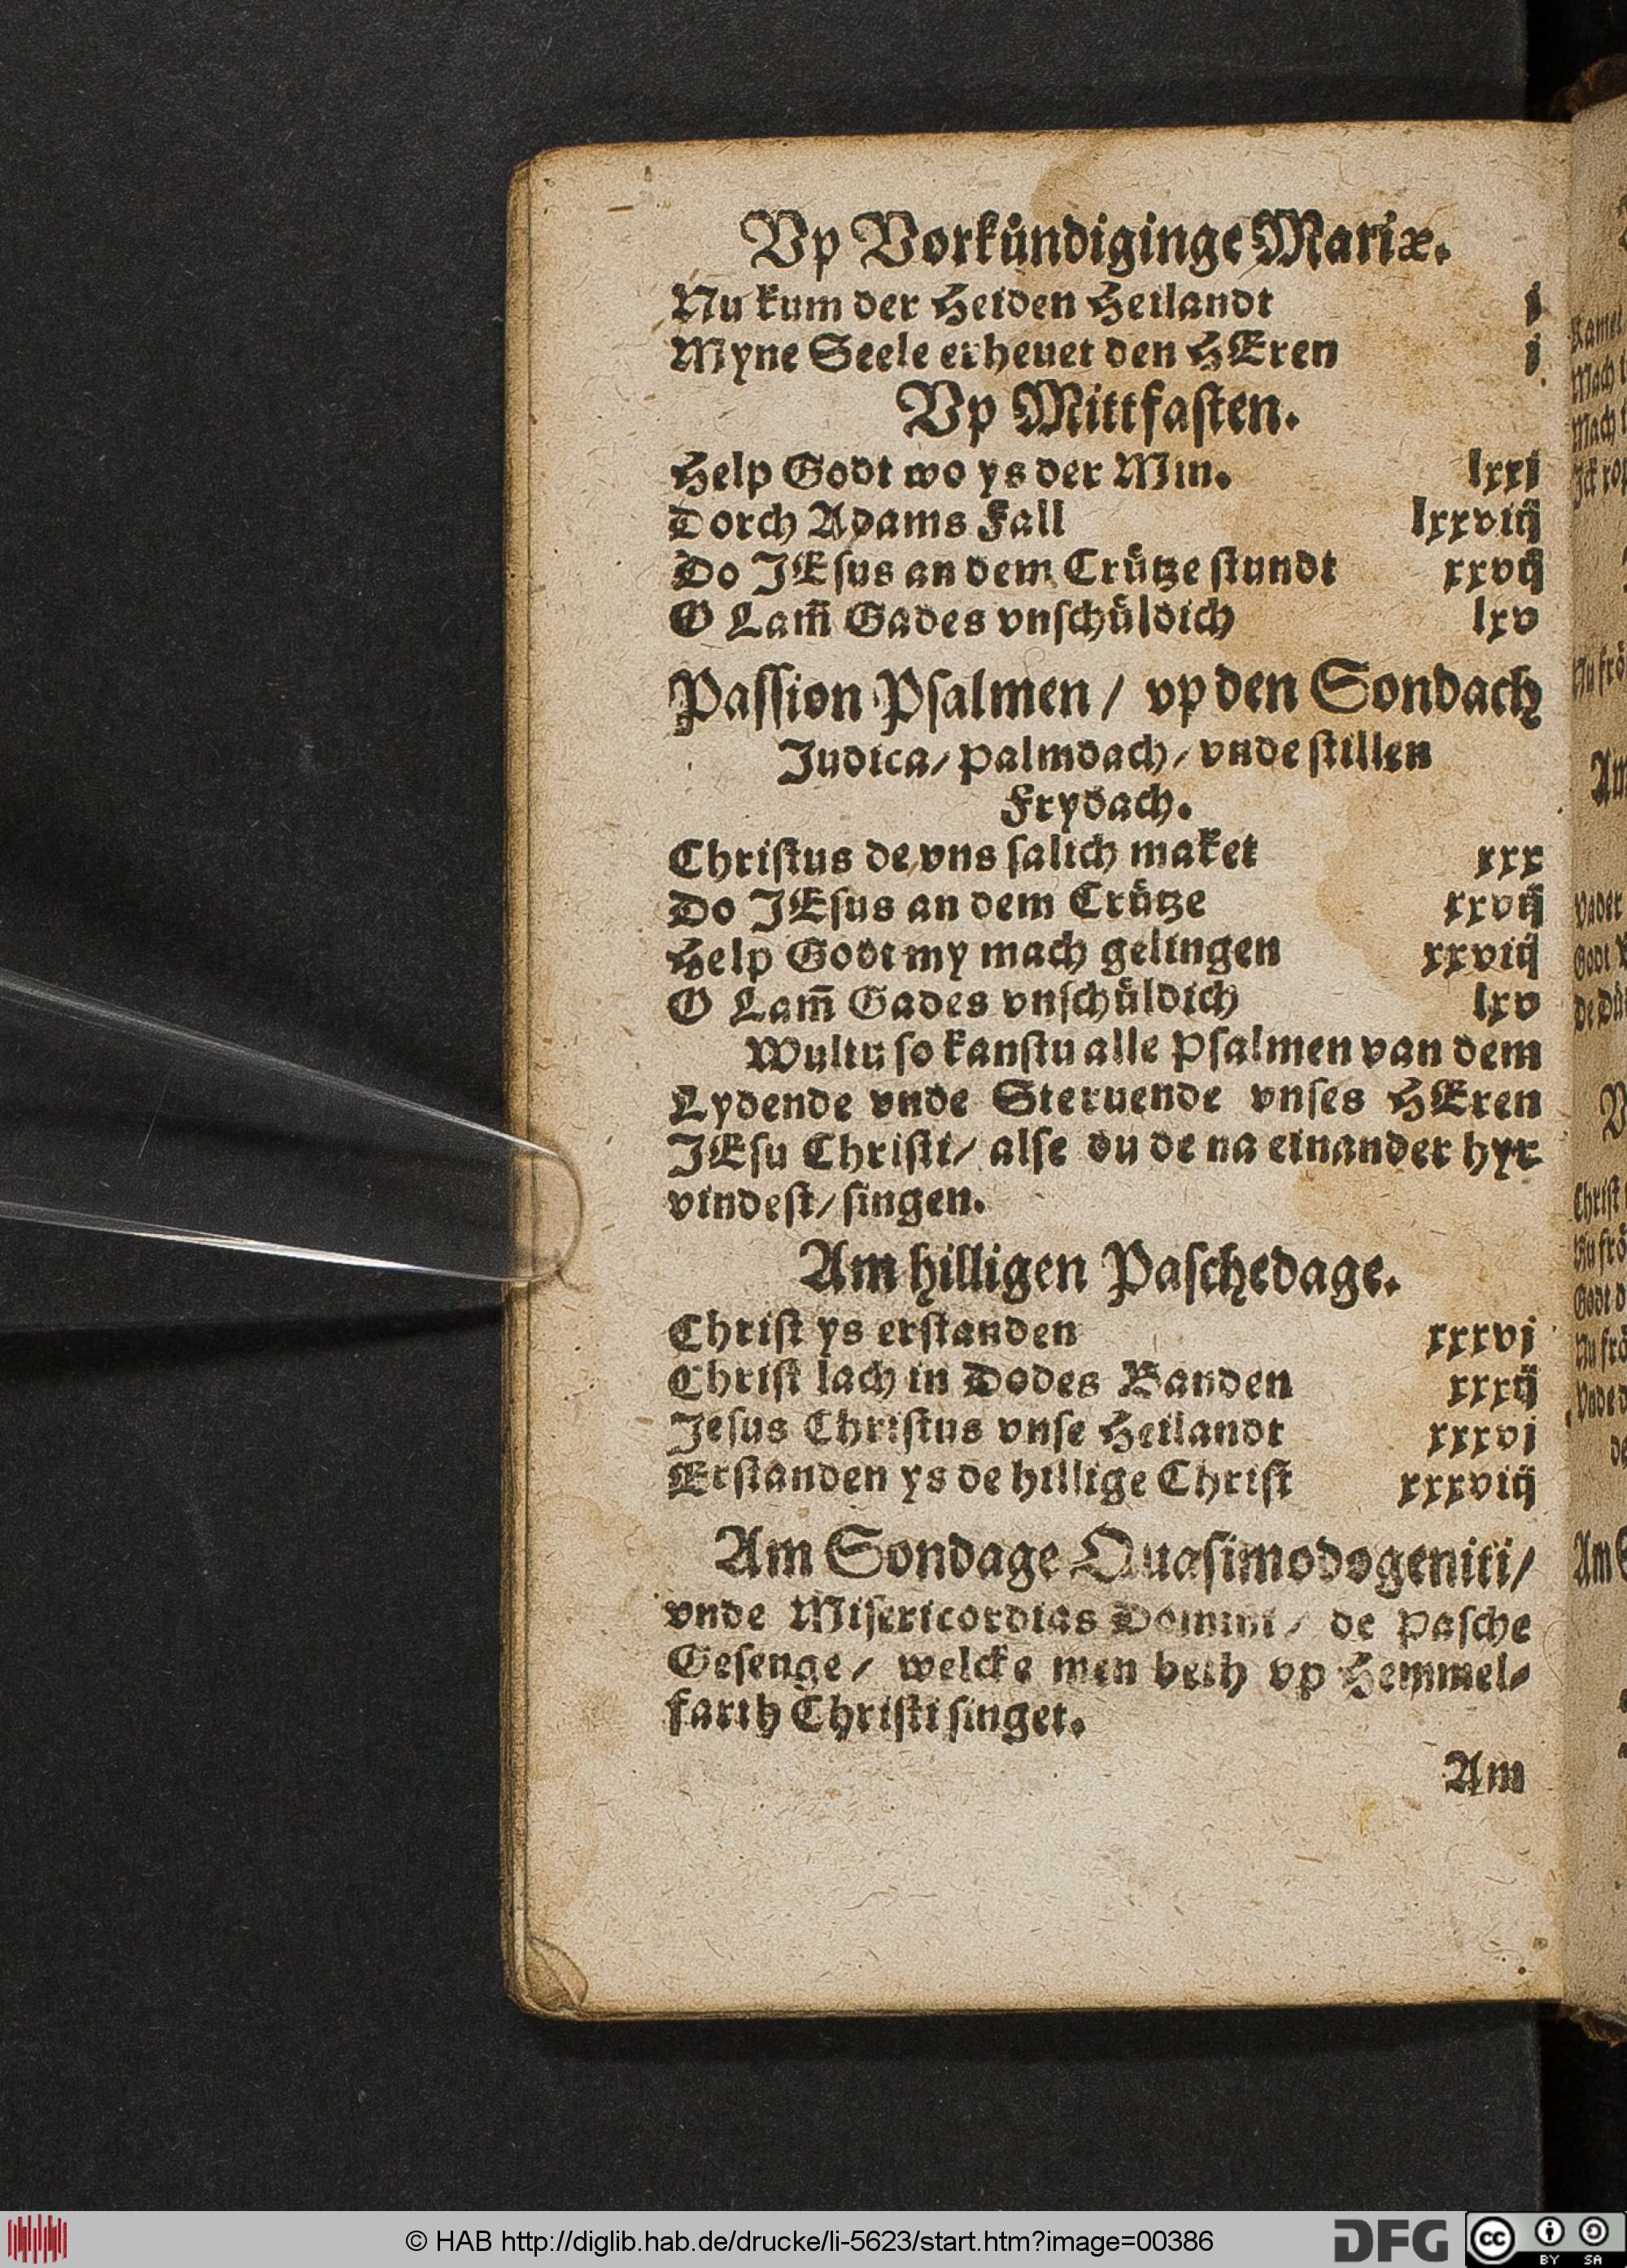 Vp Vorkuͤndiginge Mariæ.
Nu kum der Heiden Heilandt j
Myne Seele erheuet den HEren j
Vp Mittfaſten.
Help Godt wo ys der Min. lxxj
Dorch Adams Fall lxxviij
Do JEſus an dem Cruͤtze ſtundt xxvij
O Lam̃ Gades vnſchuͤldich lxv
Paſſion Pſalmen / vp den Sondach
Judica / Palmdach / vnde ſtillen
Frydach.
Chriſtus de vns ſalich maket xxx
Do JEſus an dem Cruͤtze xxvij
Help Godt my mach gelingen xxviij
O Lam̃ Gades vnſchuͤldich lxv
Wultu ſo kanſtu alle Pſalmen van dem
Lydende vnde Steruende vnſes HEren
JEſu Chriſti / alſe du de na einander hyr
vindeſt / ſingen.
Am hilligen Paſchedage.
Chriſt ys erſtanden xxxvj
Chriſt lach in Dodes Banden xxxij
Jeſus Chriſtus vnſe Heilandt xxxvj
Erſtanden ys de hillige Chriſt xxxviij
Am Sondage Quaſimodogeniti /
vnde Miſericordias Domini / de Paſche
Geſenge / welcke men beth vp Hemmel⸗
farth Chriſti ſinget.
Am
© HAB http://diglib.hab.de/drucke/li-5623/start.htm?image=00386
DFG
cc BY SA